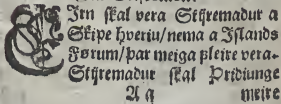 Eirn skal vera Stýremadur a
Skipe hveriu/nema a Jslands
Førum/þar meiga fleire vera.
Stýremadur skal þridiunge
A q meire